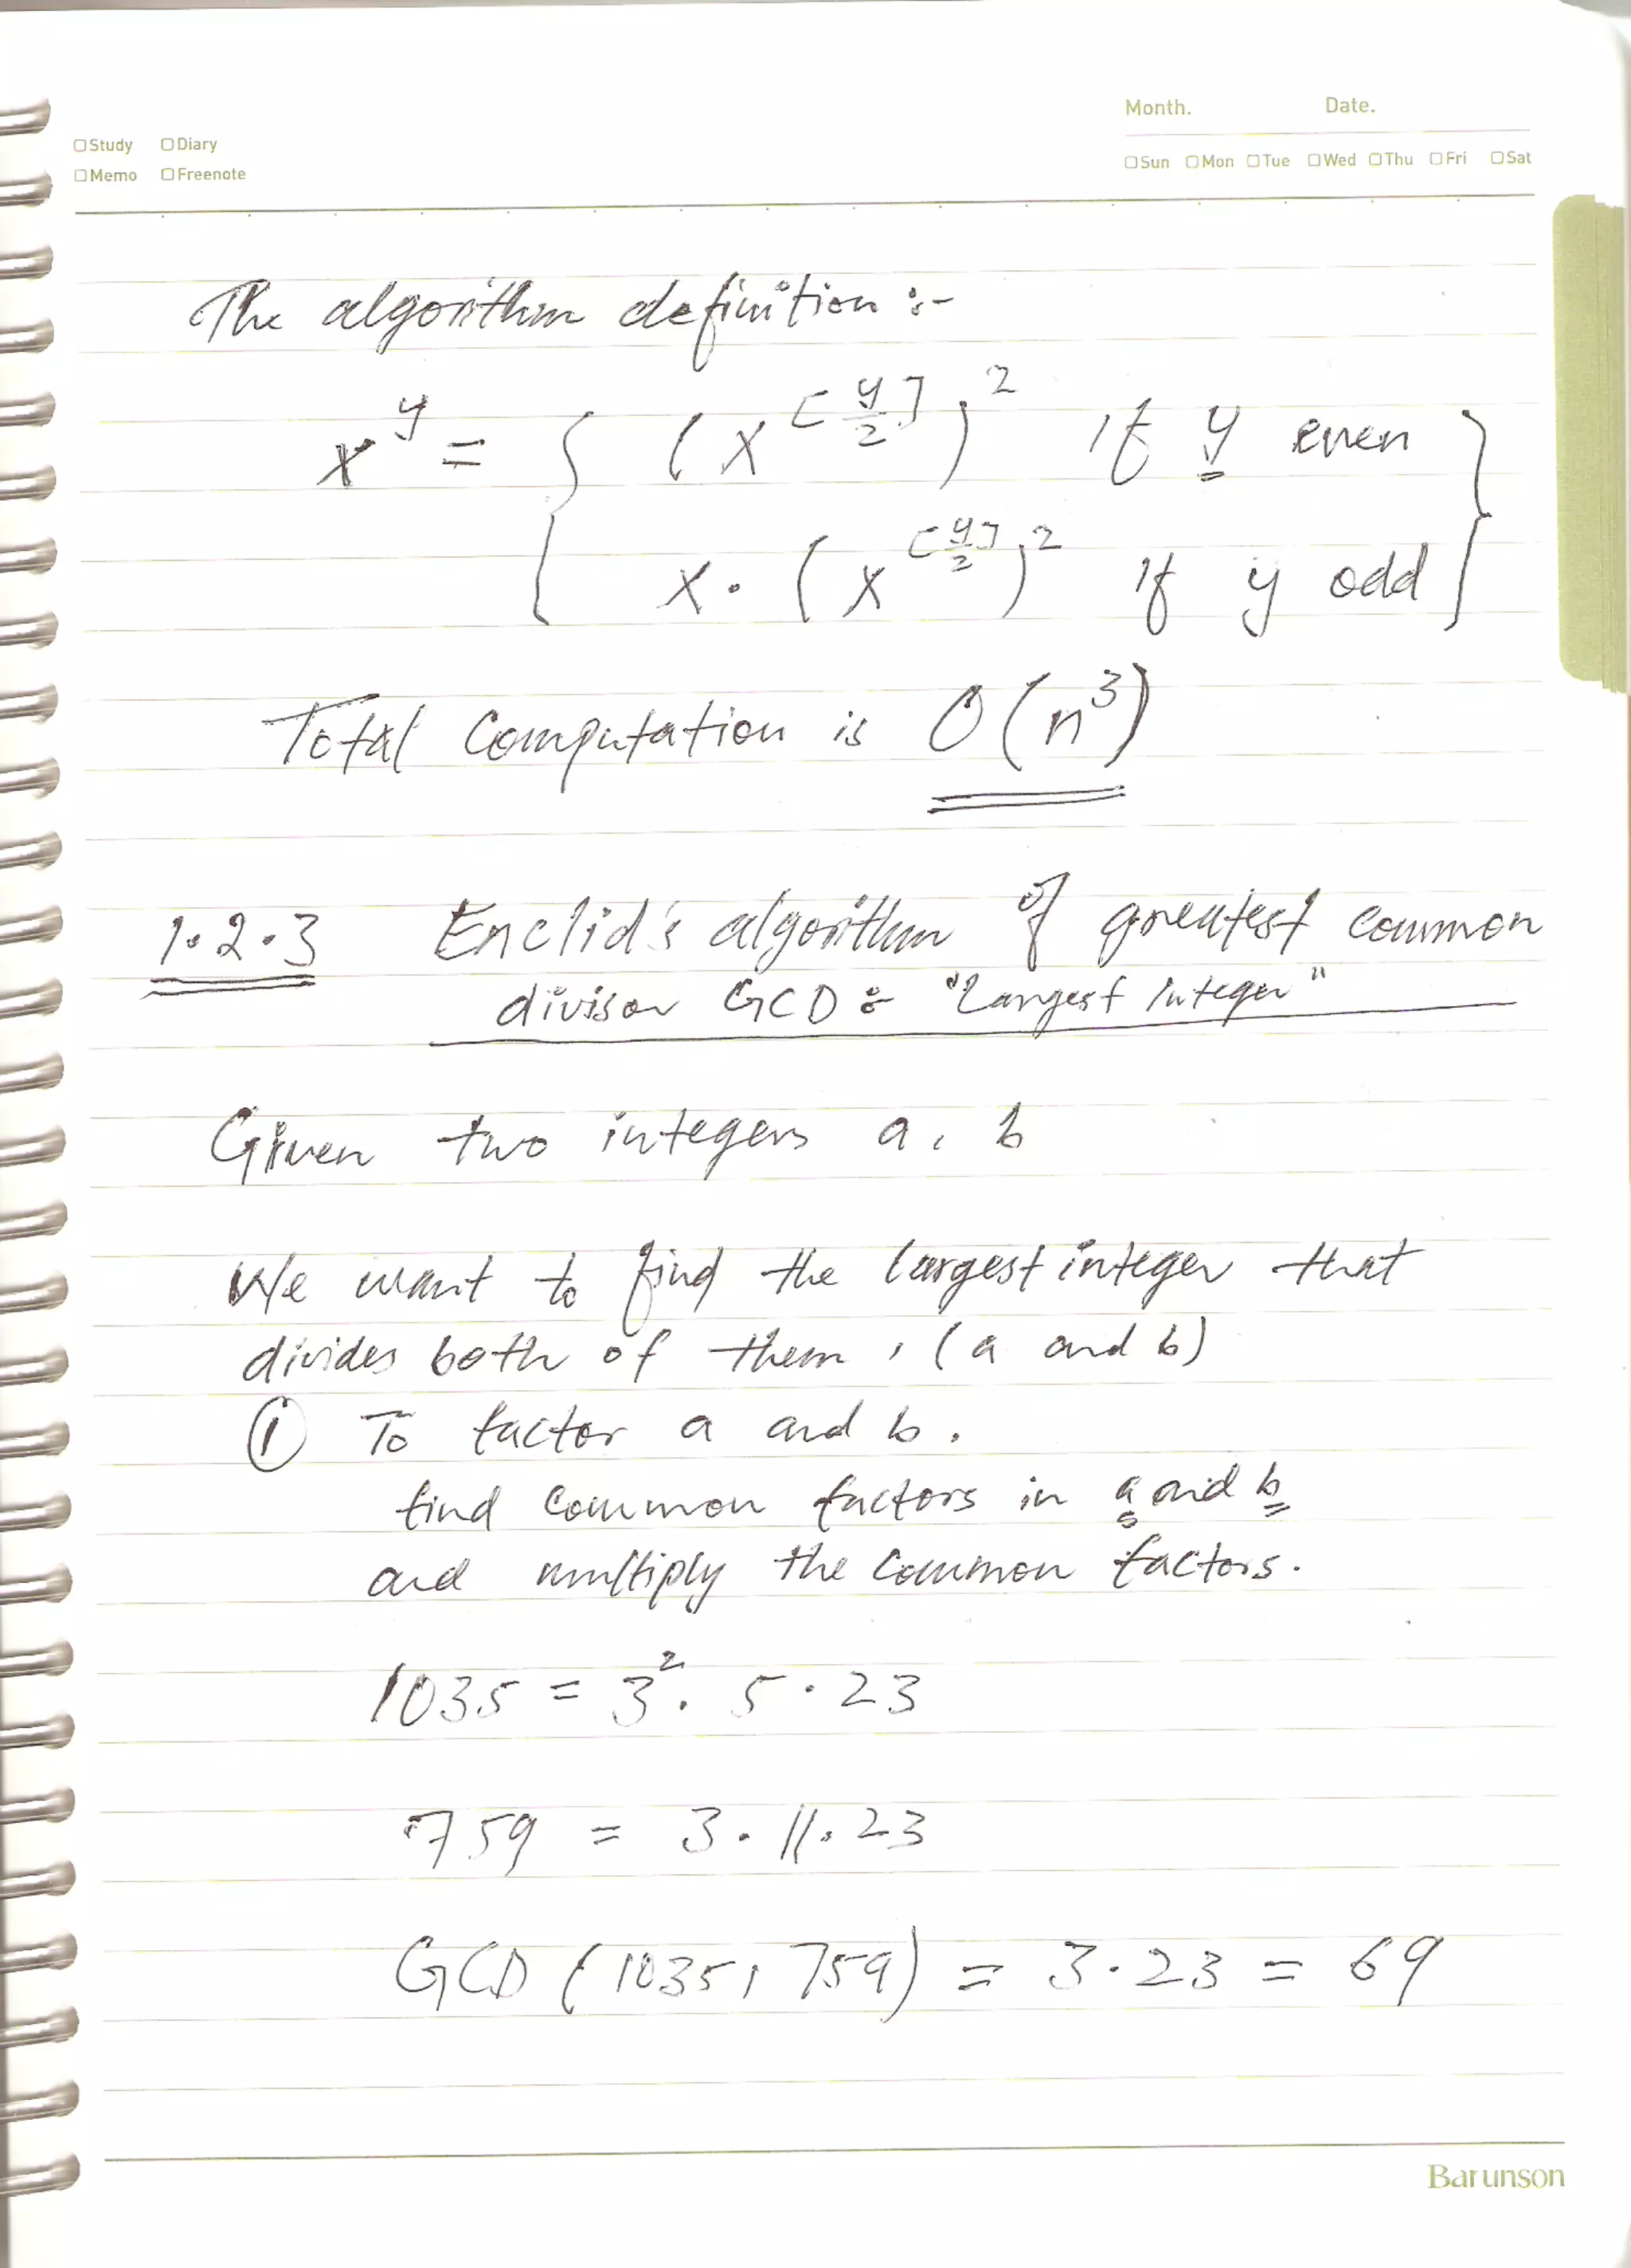 Month. Date.
□Study □Diary
□Sun □Mon □Tue □Wed □Thu □Fri □Sat
□Memo □Freenote
The algorithm definition :-
x^y = { (x^[y/2])^2 if y even }
{ x. (x^[y/2])^2 if y odd }
Total Computation is O(n^3)
1.2.3 Euclid's algorithm of greatest common
divisor GCD : "Largest Integer"
Given two integers a, b
We want to find the largest integer that
divides both of them, (a and b)
① To factor a and b.
find common factors in a and b
and multiply the common factors.
1035 = 3^2. 5 . 23
759 = 3. 11. 23
GCD (1035, 759) = 3.23 = 69
Barunson